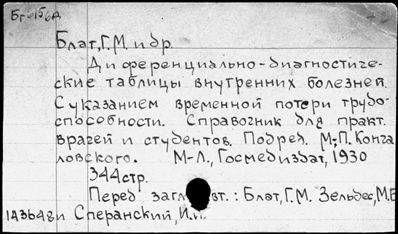 Бг-156д
Блат, Г.М и др.
Диференциально-диагностиче-
ские таблицы внутренних болезней.
С указанием временной потери трудо-
способности. Справочник для практ.
врачей и студентов. Под ред. М.П. Конча
ловского. М-Л., Госмедиздат, 1930
344 стр.
Перед загл. авт.: Блат, Г.М. Зельдес, М.Б
143648 и Сперанский, И.И.